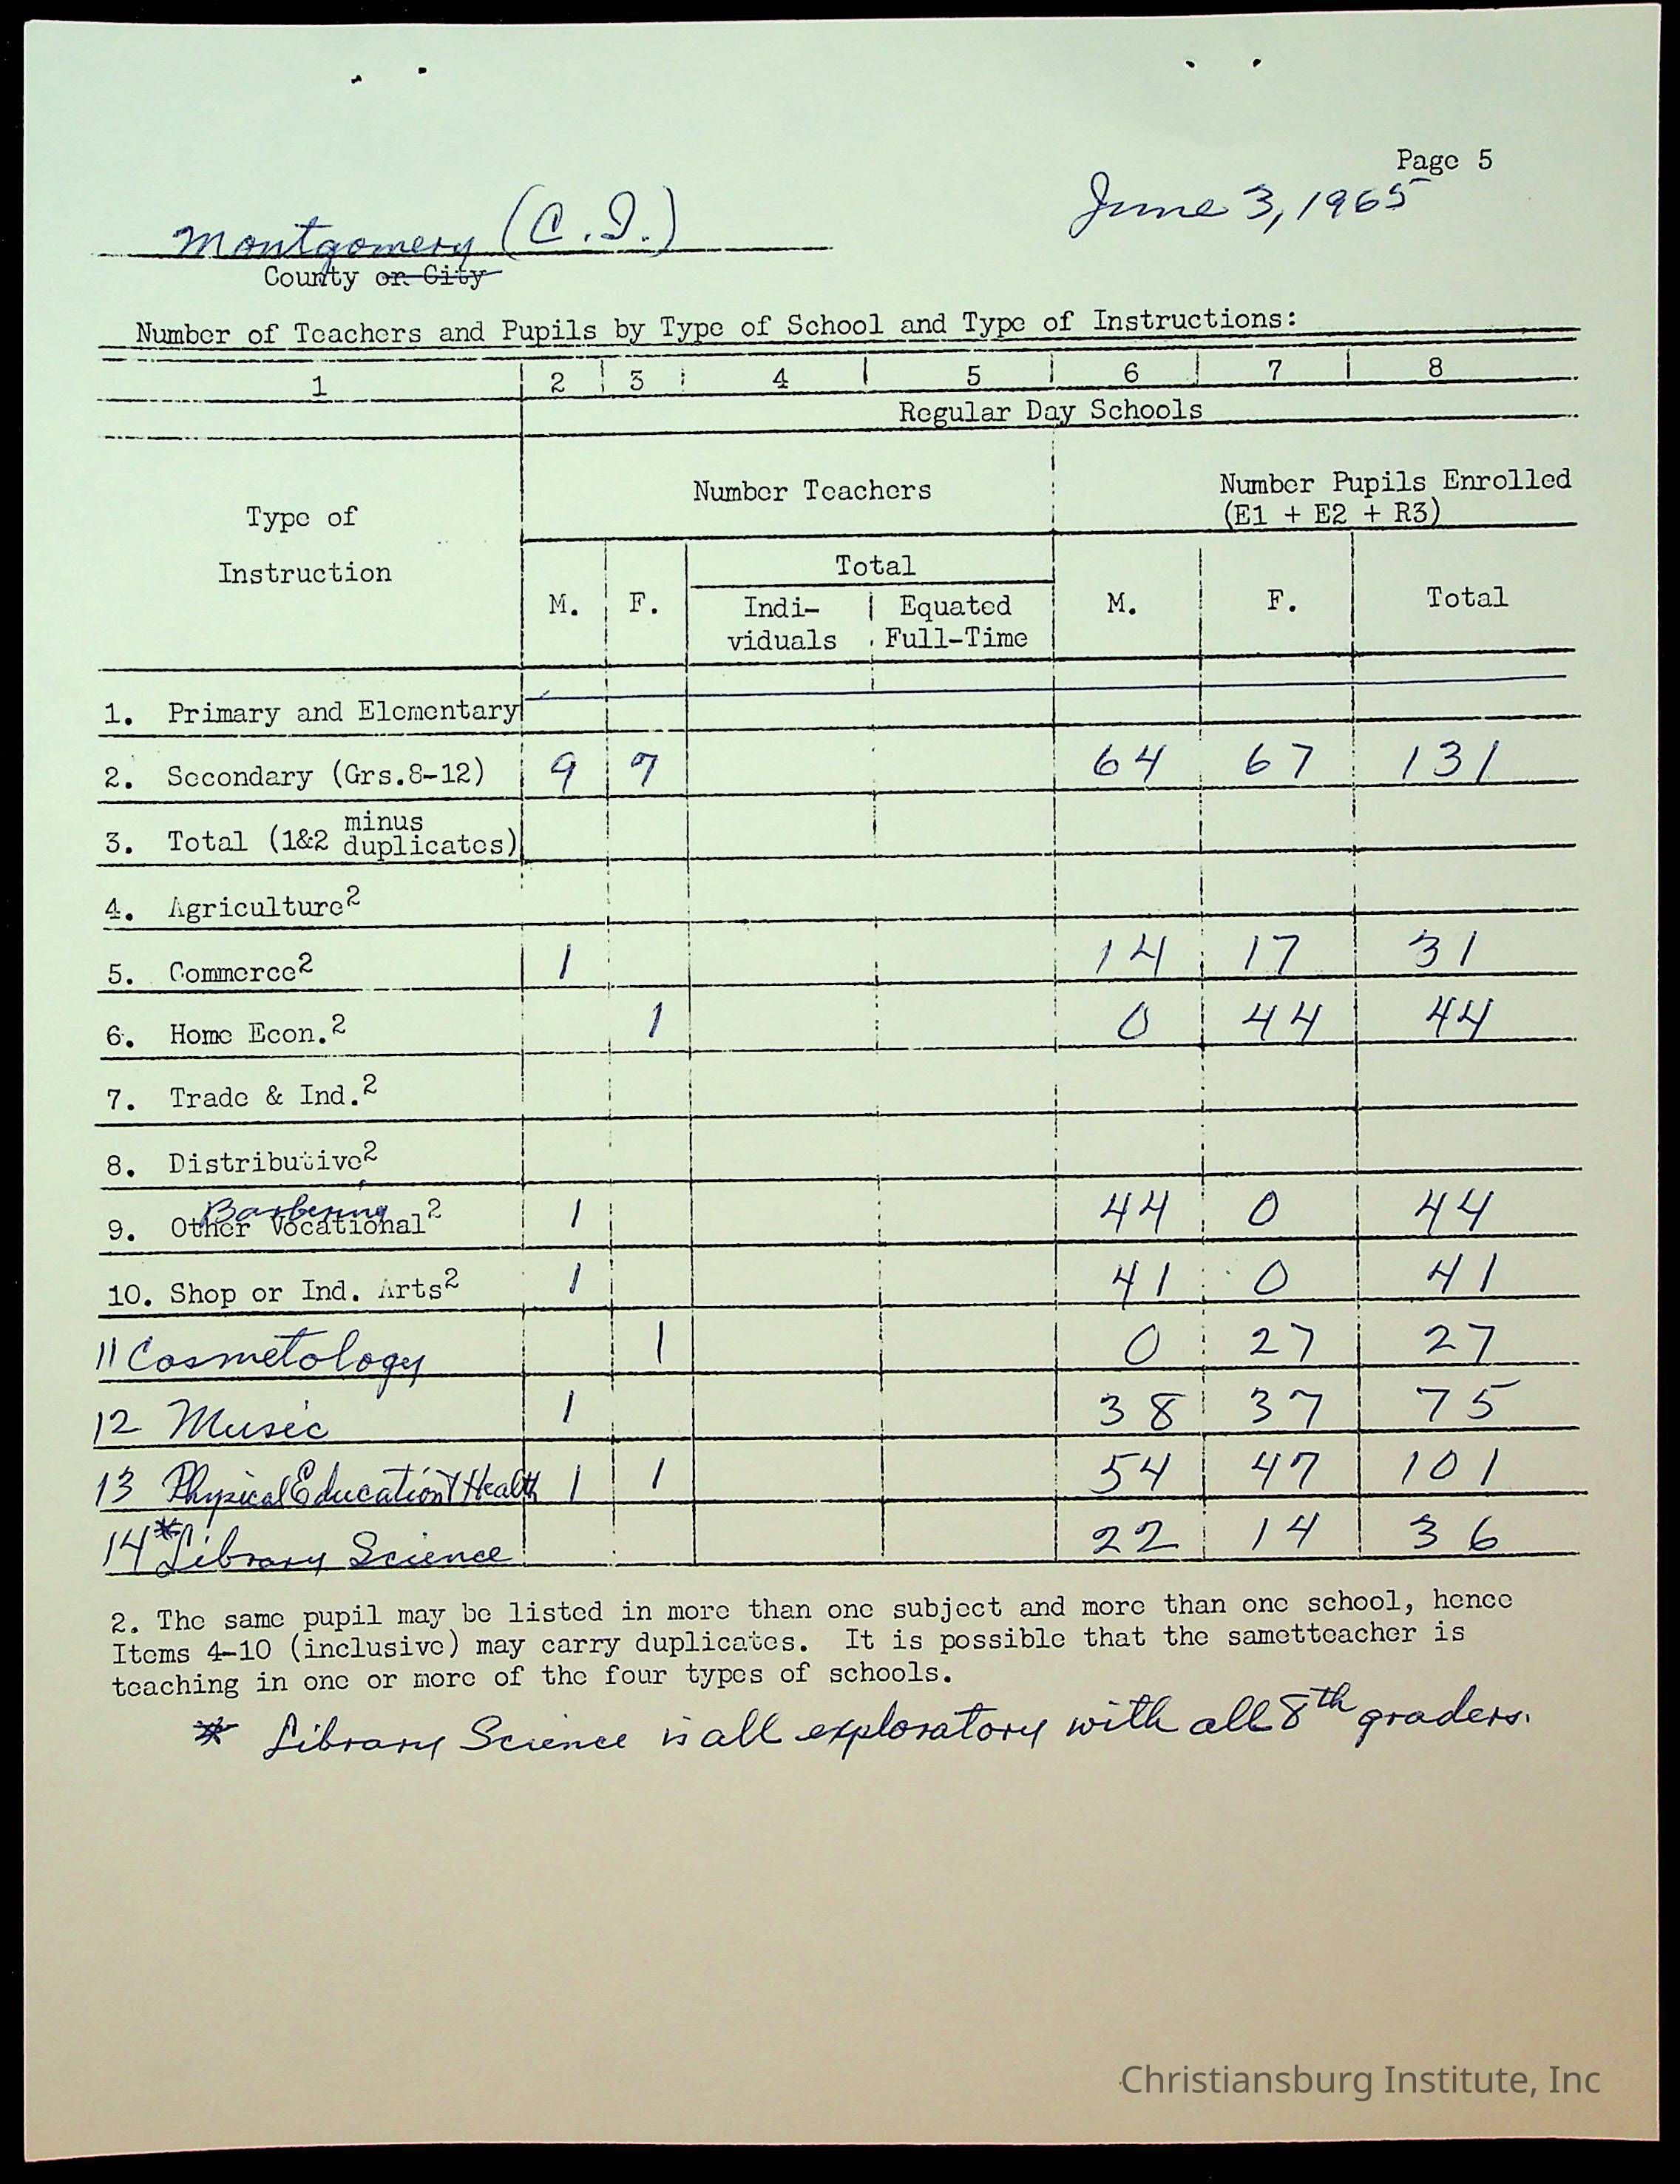 Page 5
June 3, 1965
Montgomery (C.I.)
County or City
Number of Teachers and Pupils by Type of School and Type of Instructions:
1 2 3 4 5 6 7 8
Regular Day Schools
Type of Instruction
Number Teachers
Number Pupils Enrolled
(E1 + E2 + R3)
Total
M. F. Indi-viduals Equated Full-Time M. F. Total
1. Primary and Elementary
2. Secondary (Grs.8-12) 9 7 64 67 131
3. Total (1&2 minus duplicates)
4. Agriculture2
5. Commerce2 1 14 17 31
6. Home Econ.2 1 0 44 44
7. Trade & Ind.2
8. Distributive2
Barbering
9. Other Vocational2 1 44 0 44
10. Shop or Ind. Arts2 1 41 0 41
11 Cosmetology 1 0 27 27
12 Music 1 38 37 75
13 Physical Education & Health 1 1 54 47 101
14 *Library Science 22 14 36
2. The same pupil may be listed in more than one subject and more than one school, hence
Items 4-10 (inclusive) may carry duplicates. It is possible that the sametteacher is
teaching in one or more of the four types of schools.
* Library Science is all exploratory with all 8th graders.
Christiansburg Institute, Inc